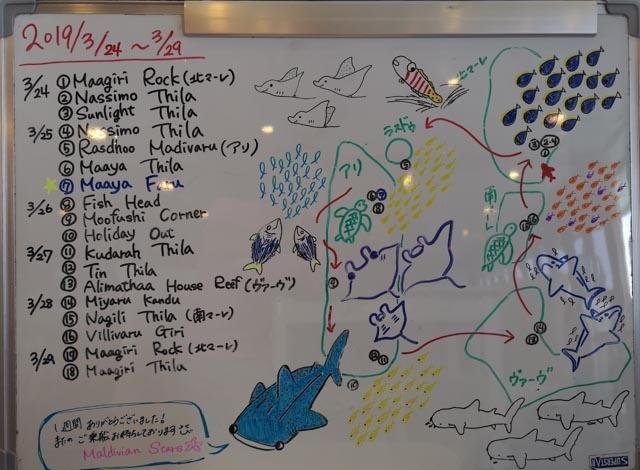 2019/3/24 ~ 3/29
3/24 ① Maagiri Rock (北マーレ)
② Nassimo Thila
③ Sunlight Thila
3/25 ④ Nassimo Thila
⑤ Rasdhoo Madivaru (アリ)
⑥ Maaya Thila
⑦ Maaya Faru
3/26 ⑧ Fish Head
⑨ Moofushi Corner
⑩ Holiday Out
3/27 ⑪ Kudarah Thila
⑫ Tin Thila
⑬ Alimathaa House Reef (ヴァーヴ)
3/28 ⑭ Miyaru Kandu
⑮ Nagili Thila (南マーレ)
⑯ Villivaru Giri
3/29 ⑰ Maagiri Rock (北マーレ)
⑱ Maagiri Thila
1週間 ありがとうございました!
またの ご乗船 お待ちしております
Maldivian Stars
北マーレ
ラスドゥ
アリ
南マーレ
ヴァーヴ